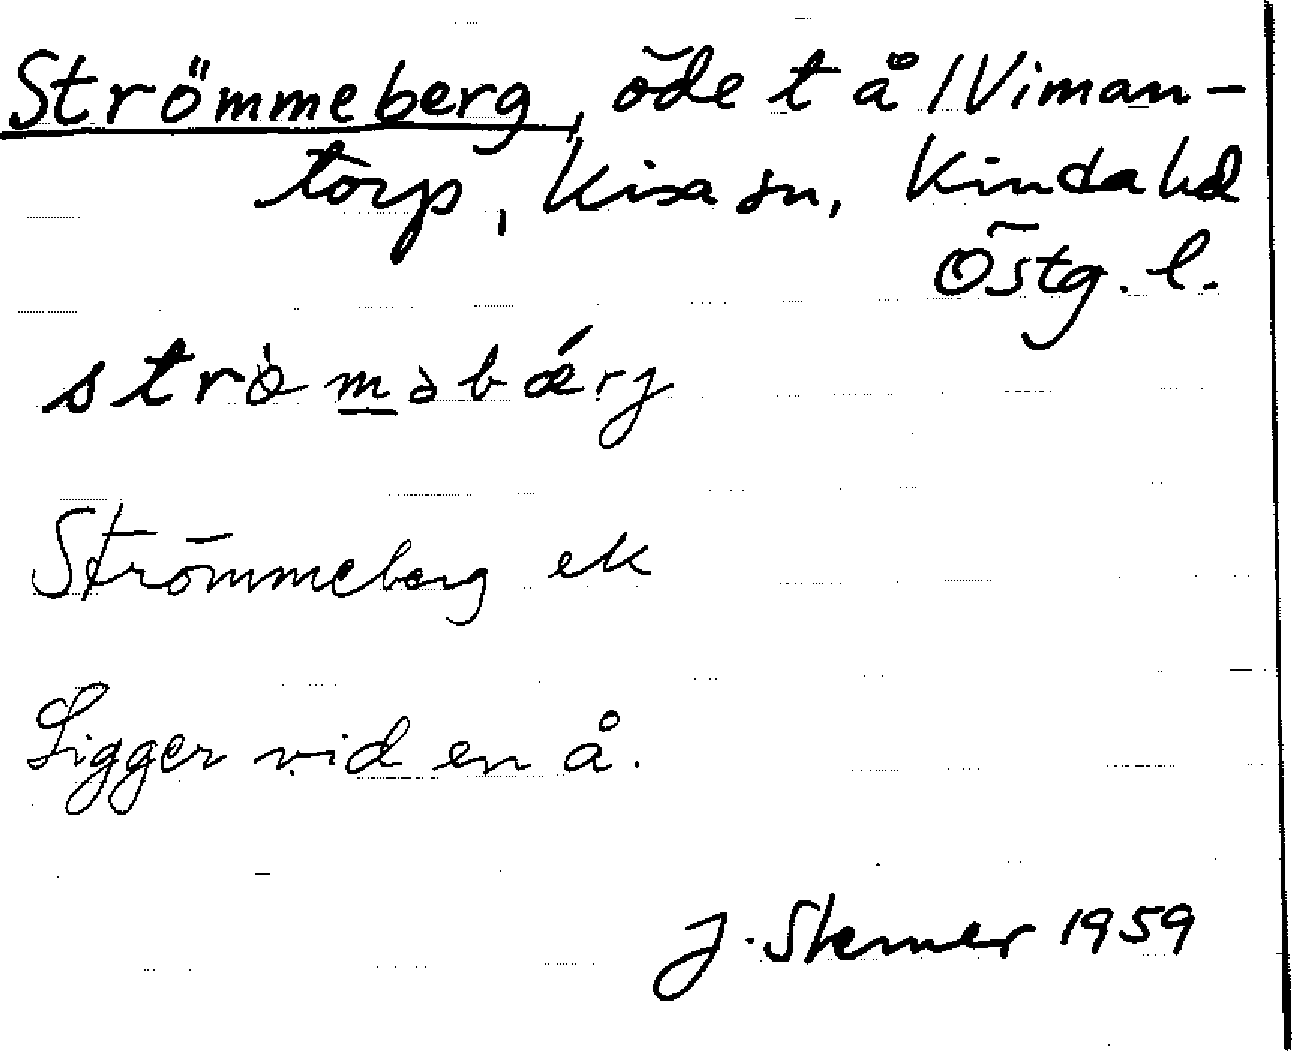 Strömmeberg, öde t å / Viman-
torp, Kisa sn, Kinda hd
Östg. l.
strö̀məbǽrj
Strömmeberg ek
Ligger vid en å.
J. Sterner 1959